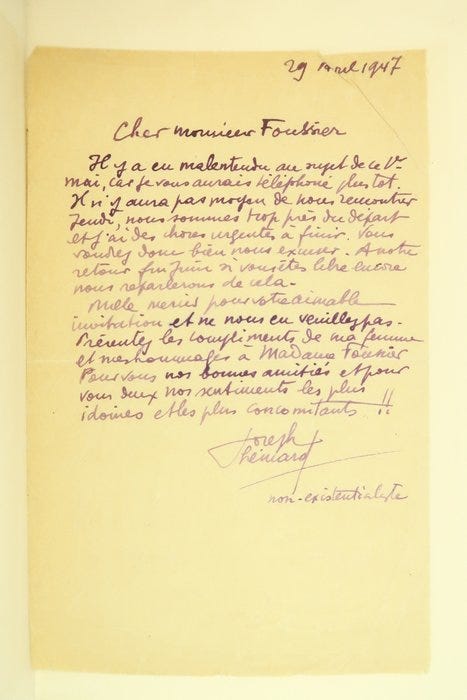 29 Avril 1947
Cher monsieur Foussier
Il y a eu malentendu au sujet de ce 1er
mai, car je vous aurais téléphoné plus tot.
Il n'y aura pas moyen de nous rencontrer
Jeudi, nous sommes trop près du départ
et j'ai des choses urgentes à finir. Vous
voudrez donc bien nous excuser. A notre
retour fin juin si vous êtes libre encore
nous reparlerons de cela.
Mille mercis pour votre aimable
invitation et ne nous en veuillez pas.
Présentez les compliments de ma femme
et mes hommages à Madame Foussier
Pour vous nos bonnes amitiés et pour
vous deux nos sentiments les plus
idoines et les plus concomitants !!
Joseph
Hémard
non-existentialiste